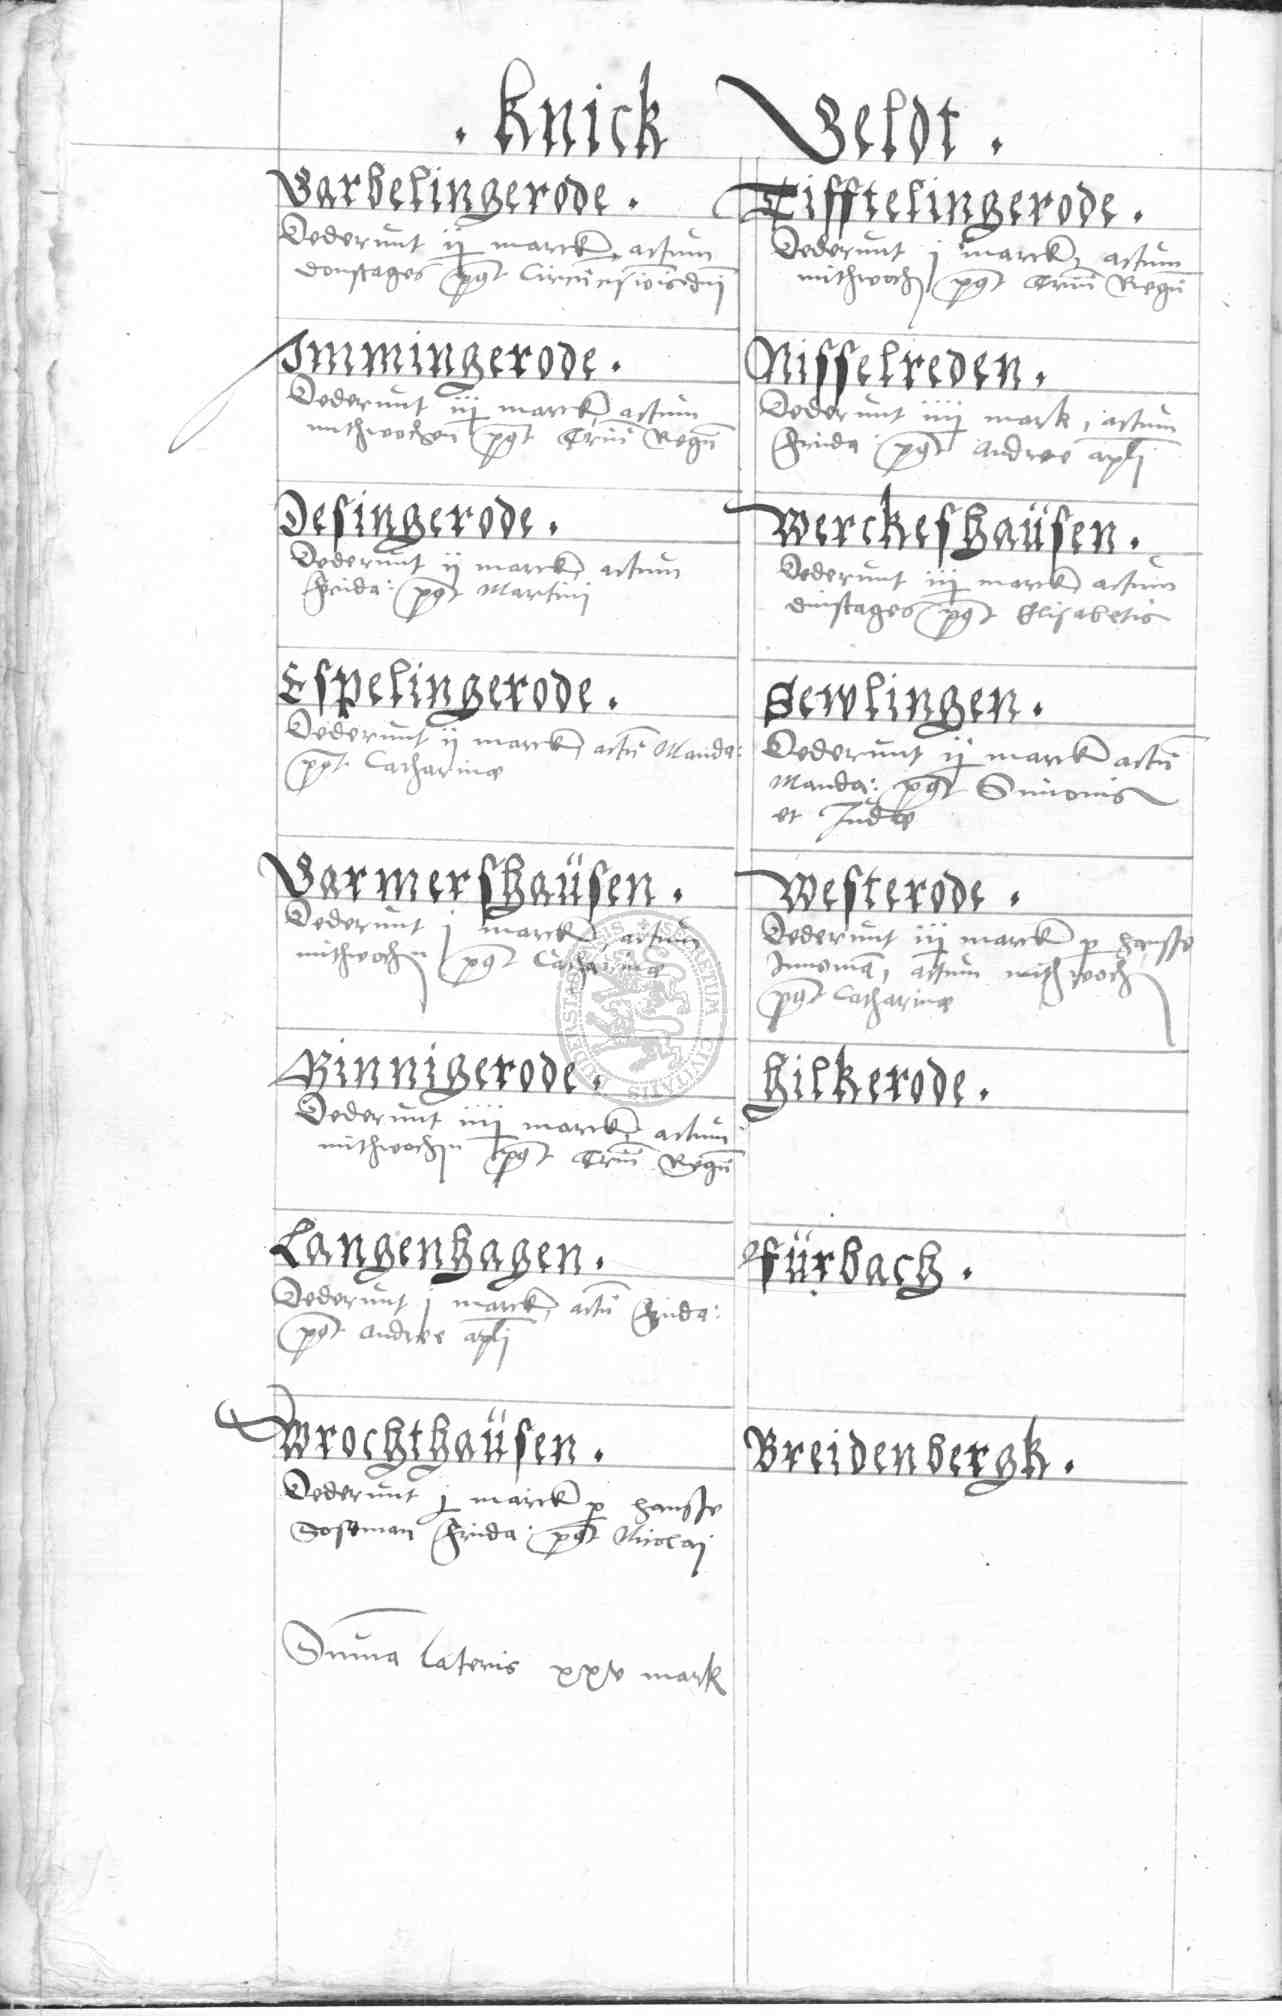 . Knick Geldt .
Garbelingerode .
Dederunt ij marck, actum
donstages pq̄t Circūcisiōis dnī
Immingerode .
Dederunt iij marck, actum
mithwochen pq̄t Triū Regū
Desingerode .
Dederunt ij marck, actum
frida: pq̄t Martini
Espelingerode .
Dederunt ij marck, actū Manda:
pq̄t Catharinæ
Garmershaüsen .
Dederunt j marck, actum
mithwochn pq̄t Catharinæ
Binnigerode .
Dederunt iiij marck, actum
mithwochn pq̄t Triū Regū
Langenhagen .
Dederunt j marck, actū frida:
pq̄t Andree apłi
Wrochthaüsen .
Dederunt j marck p hansse
Soseman frida: pq̄t Nicolaj
Suma lateris xxv mark
Tifftelingerode .
Dederunt j marck, actum
mithwoch pq̄t Triū Regū
Nisselreden .
Dederunt iiij mark, actum
frida pq̄t Andree apłi
Werckeshaüsen .
Dederunt iij marck actum
dinstages pq̄t Elisabetis
Sewlingen .
Dederunt ij marck actū
Manda: pq̄t Simonis
et Judæ
Westerode .
Dederunt iij marck p hansse
actum mithwoch
pq̄t Catharinæ
Hilkerode .
Fürbach .
Breidenbergk .
SECRETUM CIVITATIS DUDERSTADENSIS